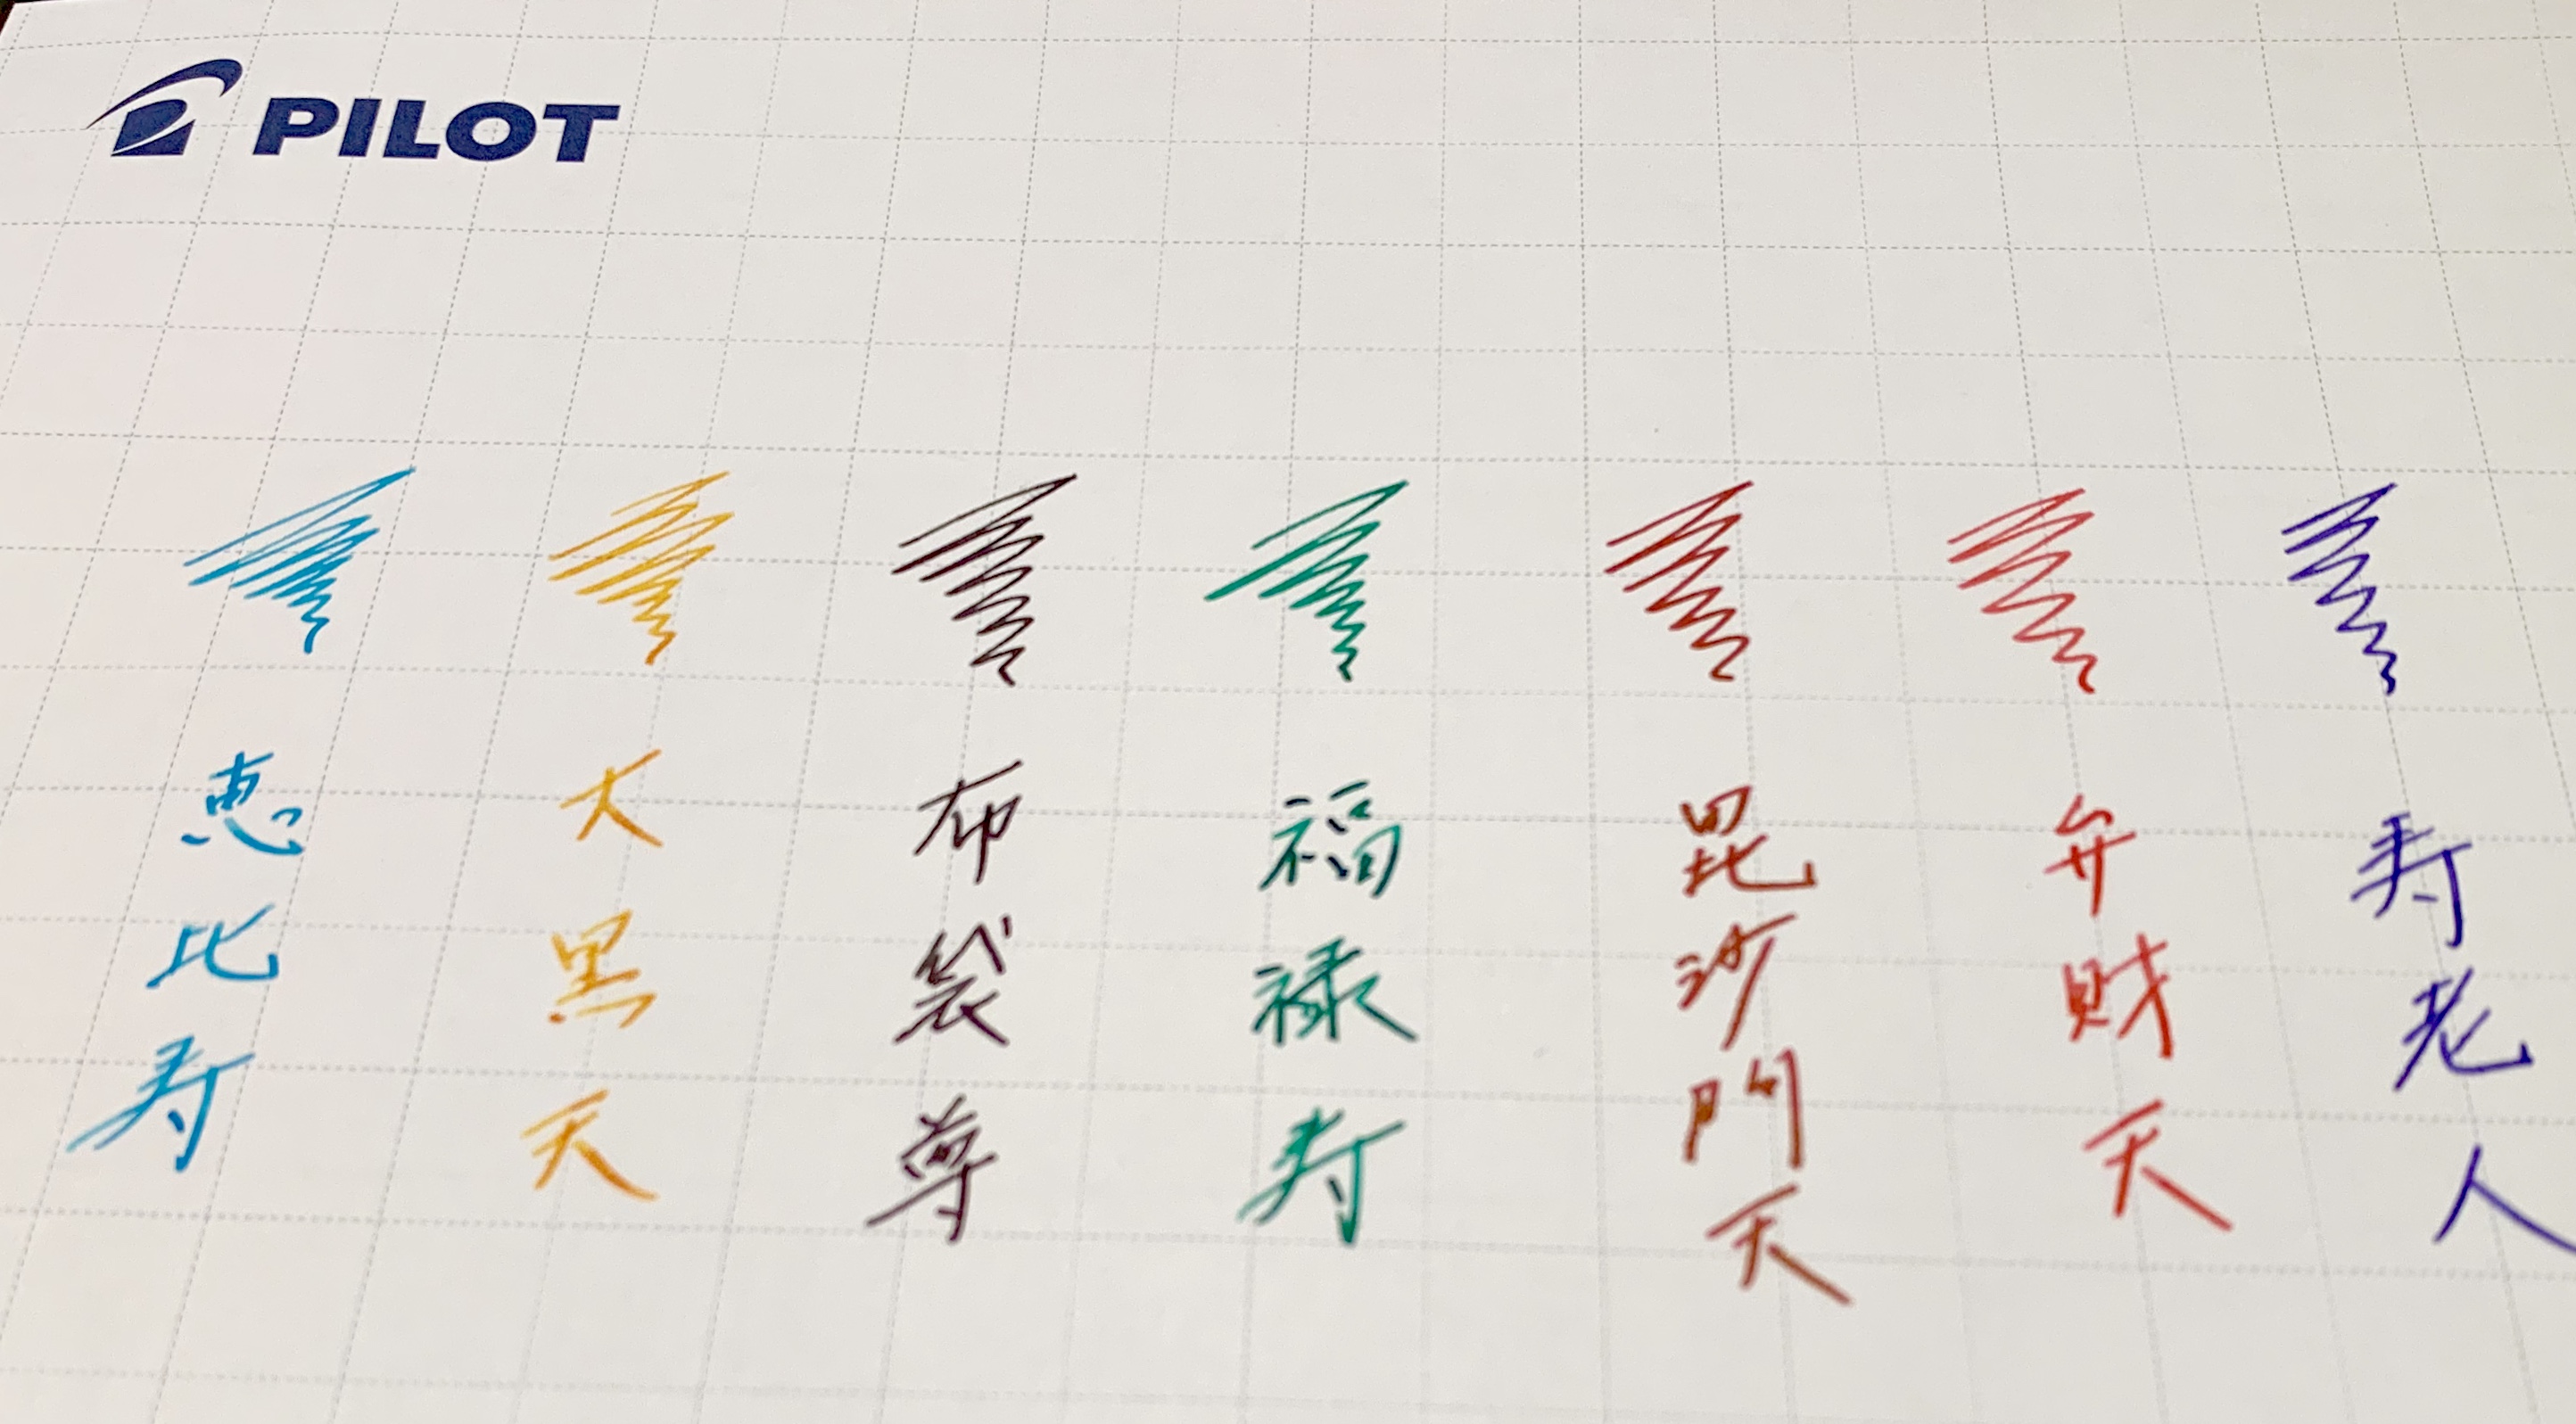 PILOT
恵比寿
大黒天
布袋尊
福禄寿
毘沙門天
弁財天
寿老人